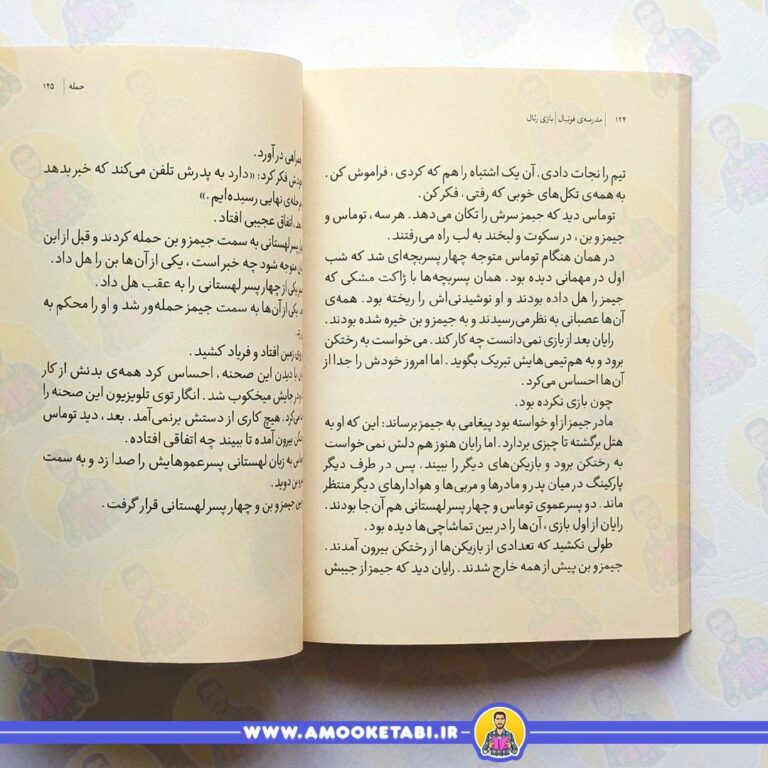 ۱۲۴ | مدرسه‌ی فوتبال | بازی رئال
تیم را نجات دادی. آن یک اشتباه را هم که کردی، فراموش کن.
به همه‌ی تکل‌های خوبی که رفتی، فکر کن.
توماس دید که جیمز سرش را تکان می‌دهد. هر سه، توماس و
جیمز و بن، در سکوت و لبخند به لب راه می‌رفتند.
در همان هنگام توماس متوجه چهار پسربچه‌ای شد که شب
اول در مهمانی دیده بود. همان پسربچه‌ها با ژاکت مشکی که
جیمز را هل داده بودند و او نوشیدنی‌اش را ریخته بود. همه‌ی
آن‌ها عصبانی به نظر می‌رسیدند و به جیمز و بن خیره شده بودند.
رایان بعد از بازی نمی‌دانست چه کار کند. می‌خواست به رختکن
برود و به هم‌تیمی‌هایش تبریک بگوید. اما امروز خودش را جدا از
آن‌ها احساس می‌کرد.
چون بازی نکرده بود.
مادر جیمز از او خواسته بود پیغامی به جیمز برساند: این که او به
هتل برگشته تا چیزی بردارد. اما رایان هنوز هم دلش نمی‌خواست
به رختکن برود و بازیکن‌های دیگر را ببیند. پس در طرف دیگر
پارکینگ در میان پدر و مادرها و مربی‌ها و هوادارهای دیگر منتظر
ماند. دو پسرعموی توماس و چهار پسر لهستانی هم آن‌جا بودند.
رایان از اول بازی، آن‌ها را در بین تماشاچی‌ها دیده بود.
طولی نکشید که تعدادی از بازیکن‌ها از رختکن بیرون آمدند.
جیمز و بن پیش از همه خارج شدند. رایان دید که جیمز از جیبش
حمله | ۱۲۵
درآورد.
فکر کرد: «دارد به پدرش تلفن می‌کند که خبر بدهد
نهایی رسیده‌ایم.»
اتفاق عجیبی افتاد.
پسر لهستانی به سمت جیمز و بن حمله کردند و قبل از این
متوجه شود چه خبر است، یکی از آن‌ها بن را هل داد.
یکی از چهار پسر لهستانی را به عقب هل داد.
یکی از آن‌ها به سمت جیمز حمله‌ور شد و او را محکم به
زمین افتاد و فریاد کشید.
با دیدن این صحنه، احساس کرد همه‌ی بدنش از کار
جایش میخکوب شد. انگار توی تلویزیون این صحنه را
هیچ کاری از دستش برنمی‌آمد. بعد، دید توماس
بیرون آمده تا ببیند چه اتفاقی افتاده.
به زبان لهستانی پسرعموهایش را صدا زد و به سمت
بن دوید.
جیمز و بن و چهار پسر لهستانی قرار گرفت.
WWW.AMOOKETABI.IR